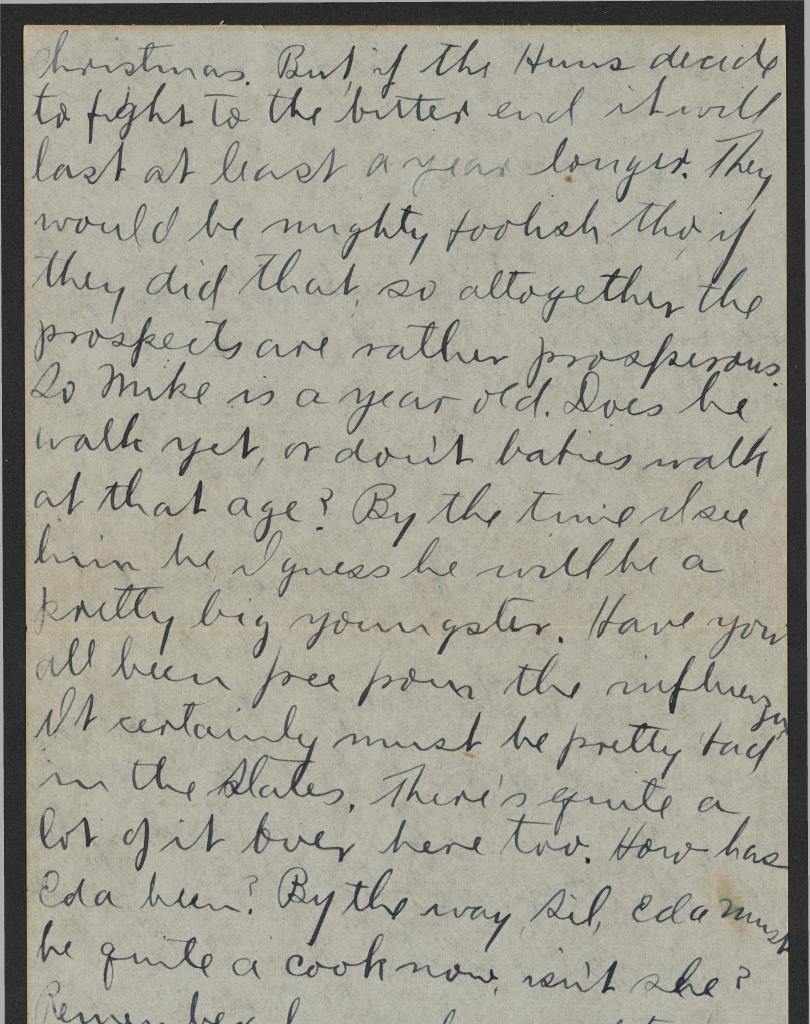 Christmas. But, if the Huns decide
to fight to the bitter end it will
last at least a year longer. They
would be mighty foolish tho, if
they did that, so altogether the
prospects are rather prosperous.
So Mike is a year old. Does he
walk yet, or don't babies walk
at that age? By the time I see
him he, I guess he will be a
pretty big youngster. Have you
all been free from the influenza
It certainly must be pretty bad
in the States. There's quite a
lot of it over here too. How has
Eda been? By the way, Sil, Eda must
be quite a cook now, isn't she?
Remember